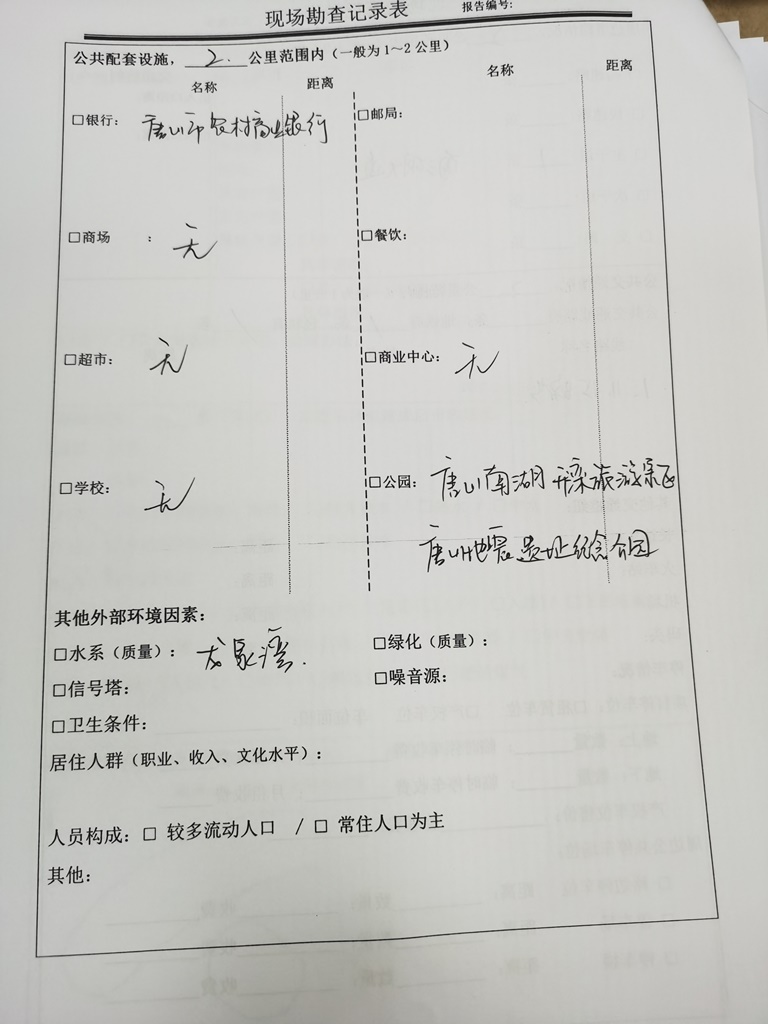 现场勘查记录表 报告编号:
公共配套设施，2.公里范围内（一般为1～2公里）
名称 距离 名称 距离
□银行： 唐山市农村商业银行 □邮局：
□商场 ： 无 □餐饮：
□超市： 无 □商业中心： 无
□学校： 无 □公园： 唐山南湖·开滦旅游景区
唐山地震遗址纪念公园
其他外部环境因素：
□水系（质量）： 龙泉湾. □绿化（质量）：
□信号塔： □噪音源：
□卫生条件：
居住人群（职业、收入、文化水平）：
人员构成：□ 较多流动人口 / □ 常住人口为主
其他：